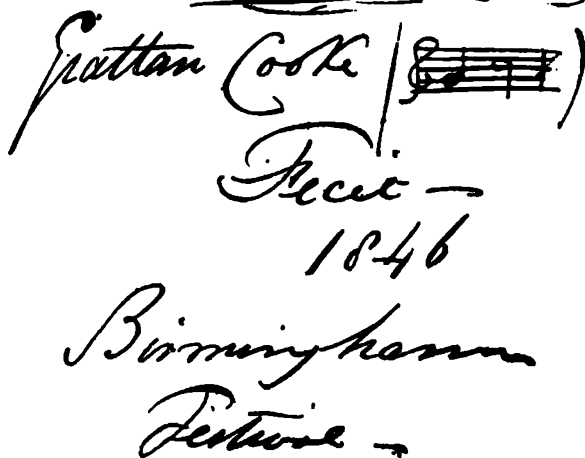 Grattan Cooke
Fecit —
1846
Birmingham
Festival —